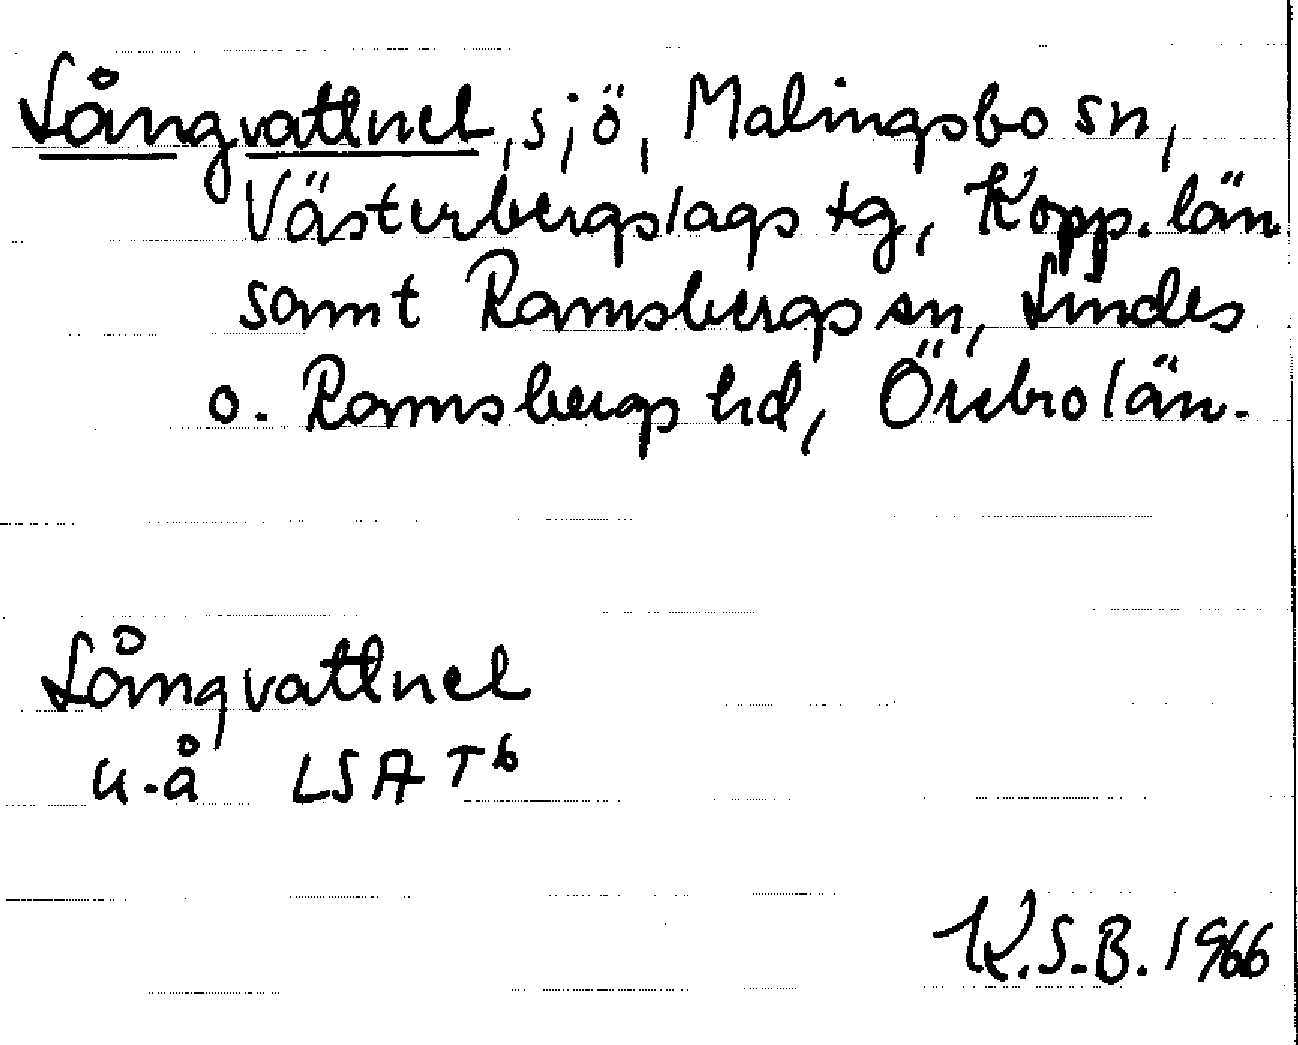 Långvattnet, sjö, Malingsbo sn,
Västerbergslags tg, Kopp. län
samt Ramsbergs sn, Lindes
o. Ramsbergs hd, Örebro län.
Långvattnet
u.å LSA T6
K.S.B. 1966